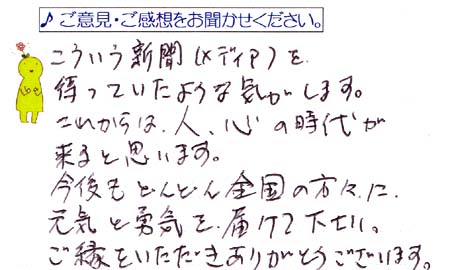 ♪ご意見・ご感想をお聞かせください。
こういう新聞(メディア)を
待っていたような気がします。
これからは、人、心の時代が
来ると思います。
今後もどんどん全国の方々に、
元気と勇気を届けて下さい。
ご縁をいただきありがとうございます。